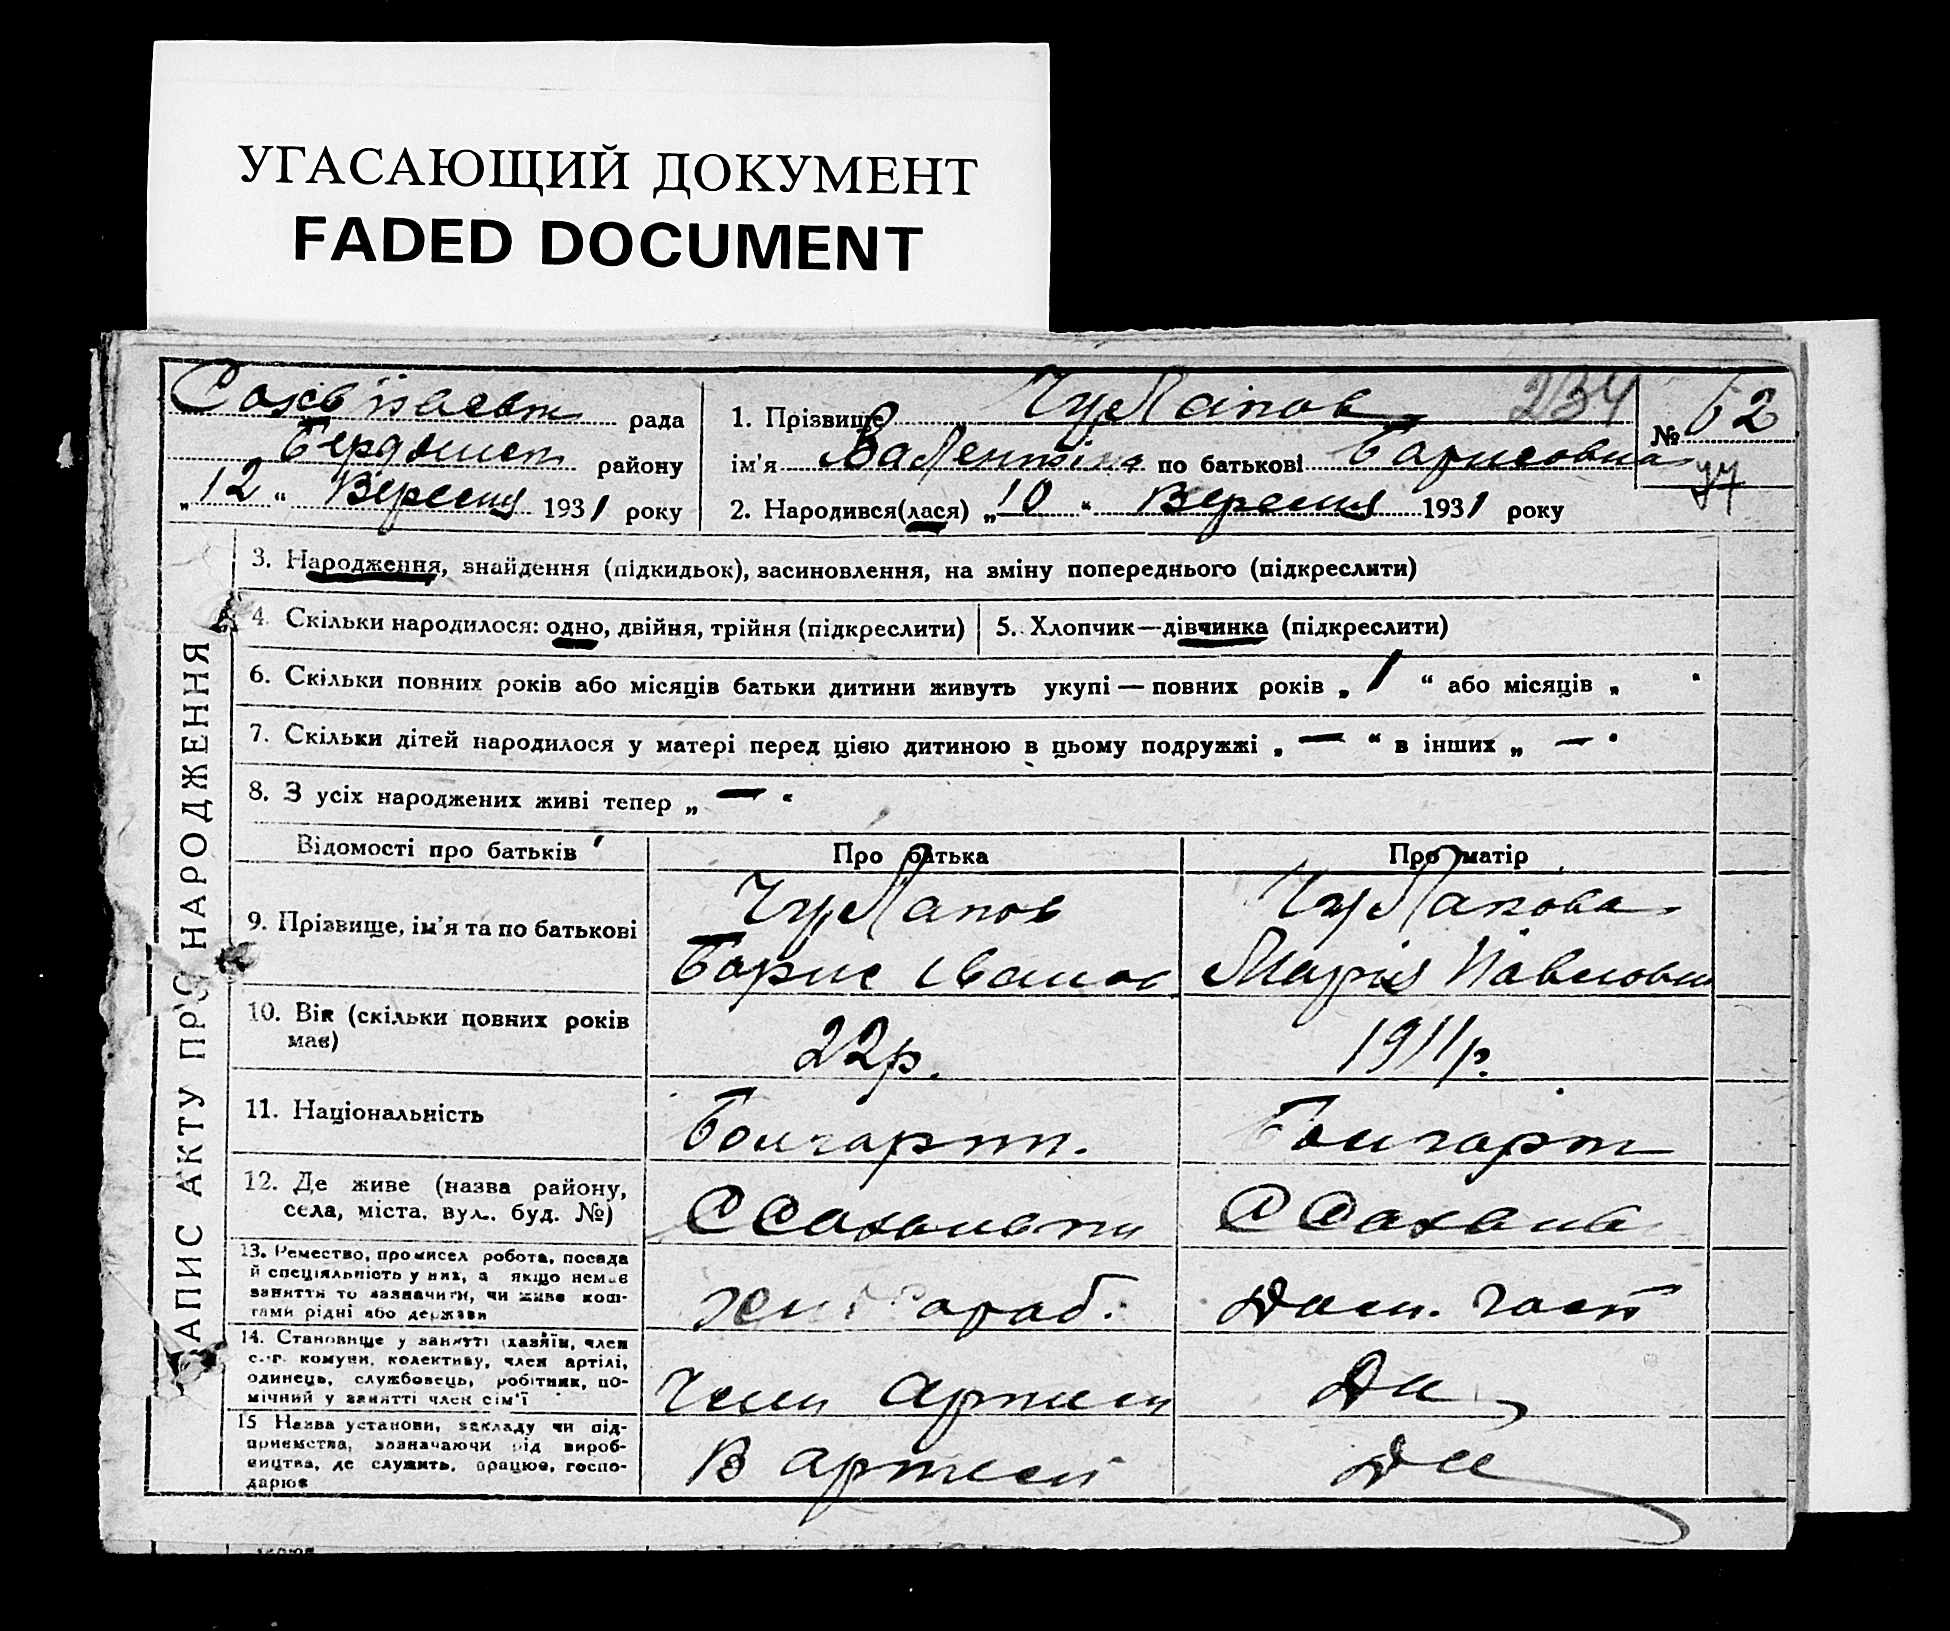 УГАСАЮЩИЙ ДОКУМЕНТ
FADED DOCUMENT
рада
району
„12“ Вересня 1931 року
1. Прізвище Чурлапов 234
ім'я Валентіна по батькові Борисовна
2. Народився(лася) „10“ Вересня 1931 року
№ 62
77
ЗАПИС АКТУ ПРО НАРОДЖЕННЯ
3. Народження, знайдення (підкидьок), засиновлення, на зміну попереднього (підкреслити)
4. Скільки народилося: одно, двійня, трійня (підкреслити)
5. Хлопчик—дівчинка (підкреслити)
6. Скільки повних років або місяців батьки дитини живуть укупі — повних років „1“ або місяців „ “
7. Скільки дітей народилося у матері перед цією дитиною в цьому подружжі „—“ в інших „—“
8. З усіх народжених живі тепер „—“
Відомості про батьків
Про батька
Про матір
9. Прізвище, ім'я та по батькові
Чурлапов
Борис Іванов
Чурлапова
Марія Павловна
10. Вік (скільки повних років
має)
22р.
1911р.
11. Національність
Болгарин.
12. Де живе (назва району,
села, міста, вул. буд. №)
13. Ремество, промисел робота, посада
й спеціяльність у них, а якщо немає
заняття то зазначити, чи живе кош-
тами рідні або держави
Дом. госп
14. Становище у занятті (хазяїн, член
с.-г. комуни, колективу, член артілі,
одинець, службовець, робітник, по-
мічний у занятті член сім'ї
Член артили
15 Назва установи, закладу чи під-
приємства, зазначаючи рід вироб-
ництва, де служить, працює, госпо-
дарює
В артили